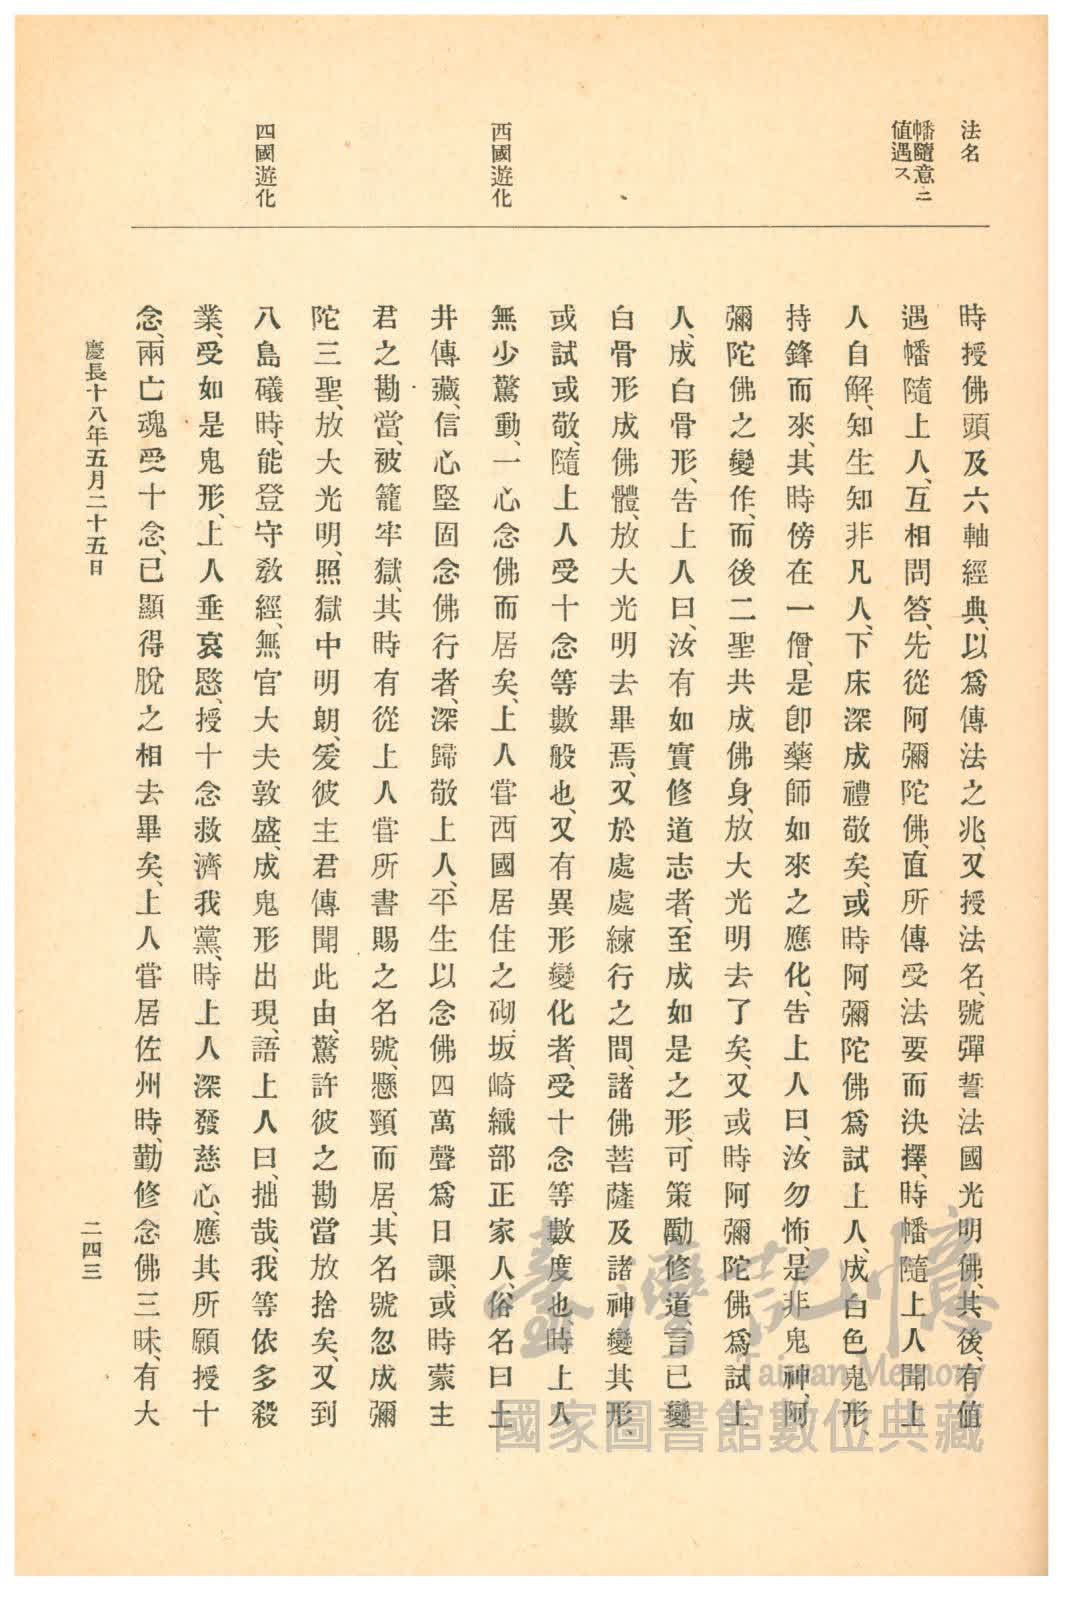 法名
幡隨意ニ
値遇ス
西國遊化
四國遊化
時授佛頭及六軸經典、以爲傳法之兆、又授法名、號彈誓法國光明佛、其後、有値
遇幡隨上人、互相問答、先從阿彌陀佛、直所傳受法要而決擇、時幡隨上人聞上
人自解、知生知非凡人、下床深成禮敬矣、或時阿彌陀佛爲試上人、成白色鬼形、
持鋒而來、其時傍在一僧、是卽藥師如來之應化、告上人曰、汝勿怖、是非鬼神、阿
彌陀佛之變作、而後二聖共成佛身、放大光明去了矣、又或時阿彌陀佛爲試上
人、成白骨形、告上人曰、汝有如實修道志者、至成如是之形、可策勵修道、言已變
白骨形成佛體、放大光明去畢焉、又於處處練行之間、諸佛菩薩及諸神變其形、
或試或敬、隨上人受十念等數般也、又有異形變化者、受十念等數度也、時上人
無少驚動、一心念佛而居矣、上人甞西國居住之砌、坂崎織部正家人、俗名曰土
井傳藏、信心堅固念佛行者、深歸敬上人、平生以念佛四萬聲爲日課、或時蒙主
君之勘當、被籠牢獄、其時有從上人甞所書賜之名號、懸頸而居、其名號忽成彌
陀三聖、放大光明、照獄中明朗、爰彼主君傳聞此由、驚許彼之勘當放捨矣、又到
八島礒時、能登守敎經、無官大夫敦盛、成鬼形出現、語上人曰、拙哉、我等依多殺
業、受如是鬼形、上人垂哀愍、授十念救濟我黨、時上人深發慈心、應其所願授十
念、兩亡魂受十念、已顯得脫之相去畢矣、上人甞居佐州時、勤修念佛三昧、有大
慶長十八年五月二十五日
二四三
臺灣記憶
Taiwan Memory
國家圖書館數位典藏